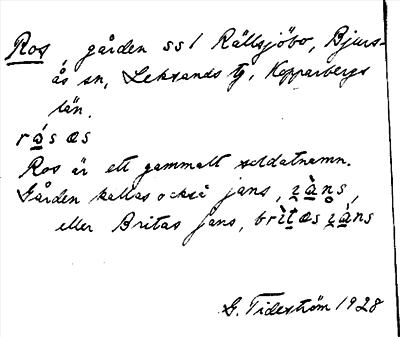 Ros, gården ss1 Rällsjöbo, Bjurs-
ås sn, Leksands tg, Kopparbergs
län.
rásæs
Ros är ett gammalt soldatnamn.
Gården kallas också jans,
eller Britas jans,
G. Tideström 1928